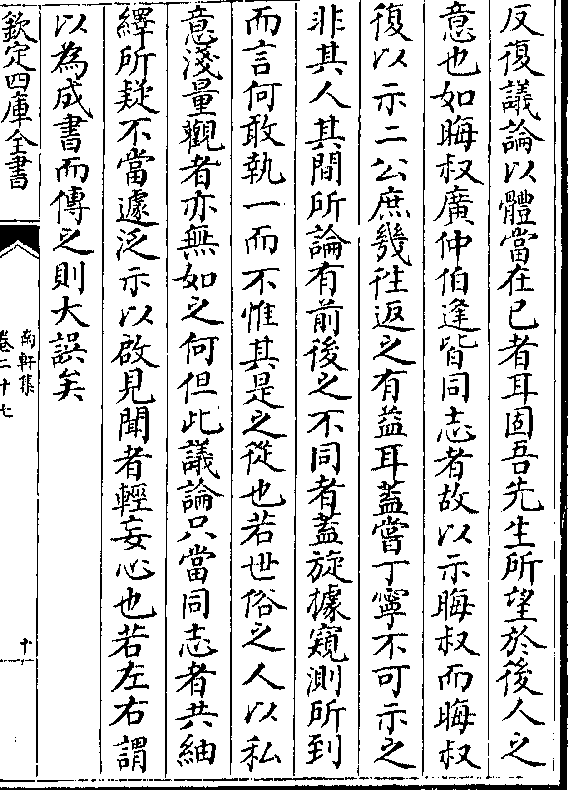 反復議論以體當在已者耳固吾先生所望於後人之
意也如晦叔廣仲伯逢皆同志者故以示晦叔而晦叔
復以示二公庶幾徃返之有益耳葢嘗丁寧不可示之
非其人其間所論有前後之不同者葢旋據窺測所到
而言何敢執一而不惟其是之從也若世俗之人以私
意淺量觀者亦無如之何但此議論只當同志者共紬
繹所疑不當遽泛示以啟見聞者輕妄心也若左右謂
以為成書而傳之則大誤矣
欽定四庫全書
南軒集
卷二十七
十